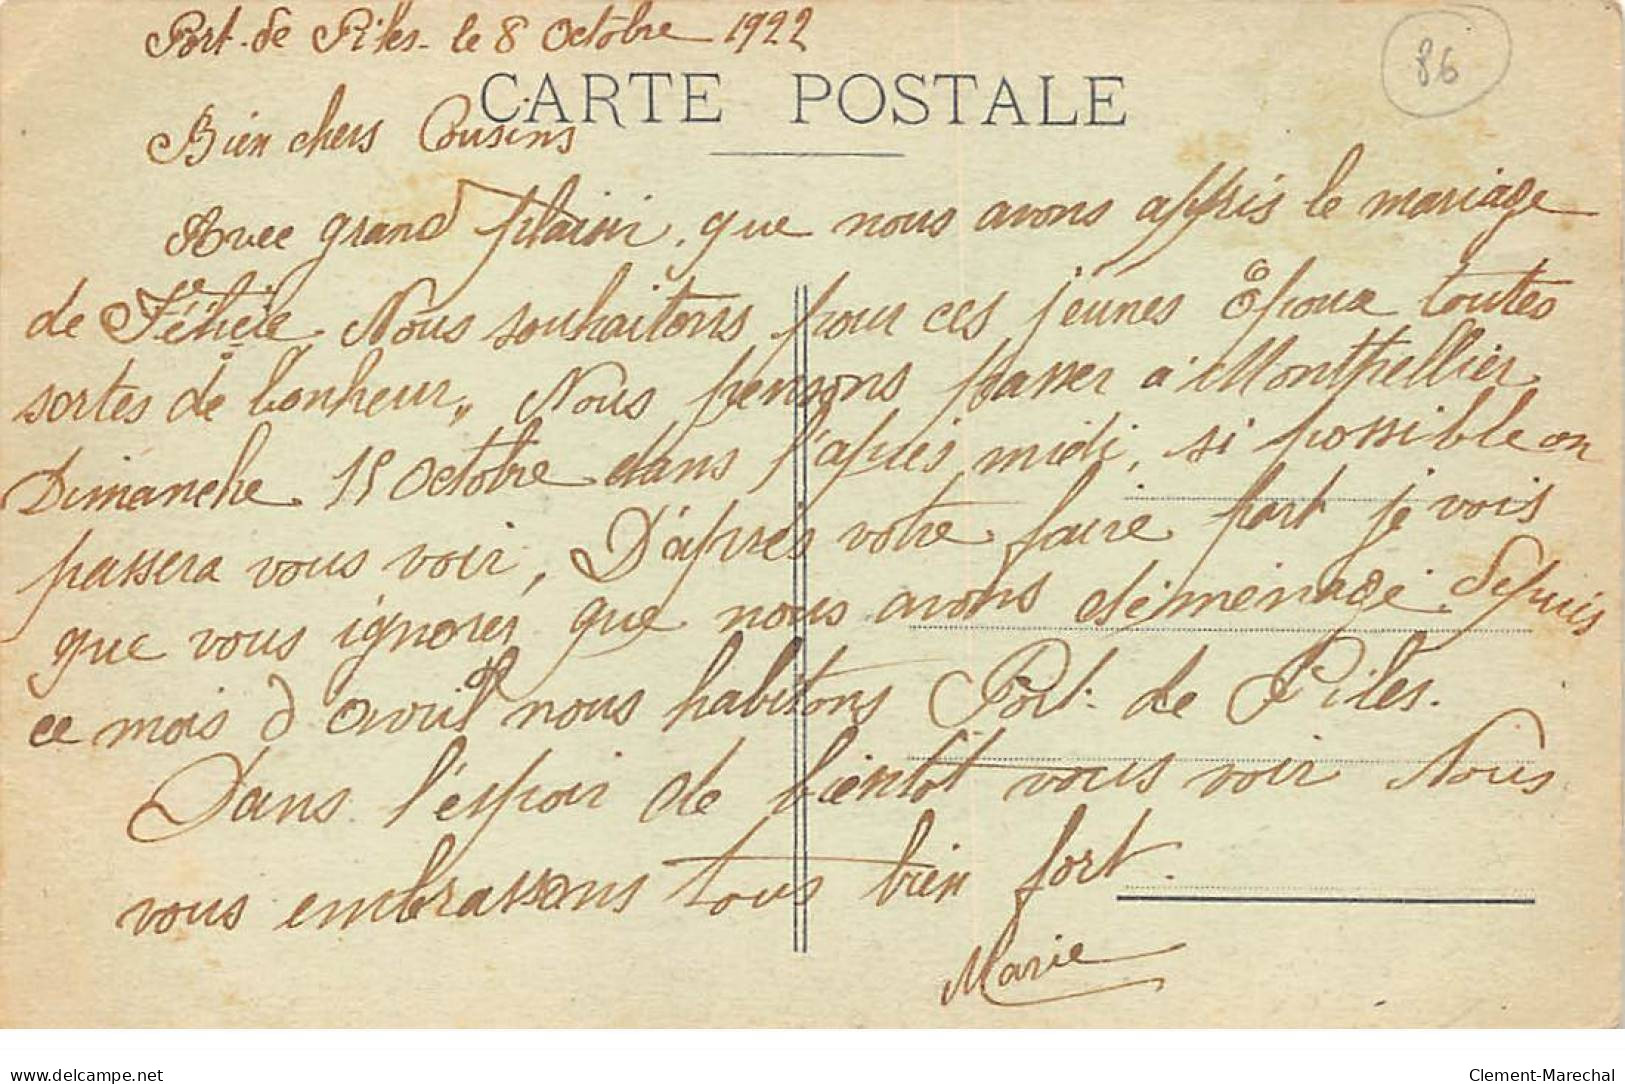 Port-de Piles- le 8 Octobre 1922
86
CARTE POSTALE
Bien chers Cousins
Avec grand plaisir, que nous avons appris le mariage
de Félicie. Nous souhaitons pour ces jeunes Epoux toutes
sortes de bonheur,, Nous pensons passer à Montpellier
Dimanche 15 Octobre dans l'après midi, si possible on
passera vous voir, D'après votre faire part je vois
que vous ignorer que nous avons déménagé depuis
ce mois d avril nous habitons Port-de Piles.
Dans l'espoir de bientôt vous voir Nous
vous embrassons tous bien fort.
Marie
delcampe.net
Clement-Marechal